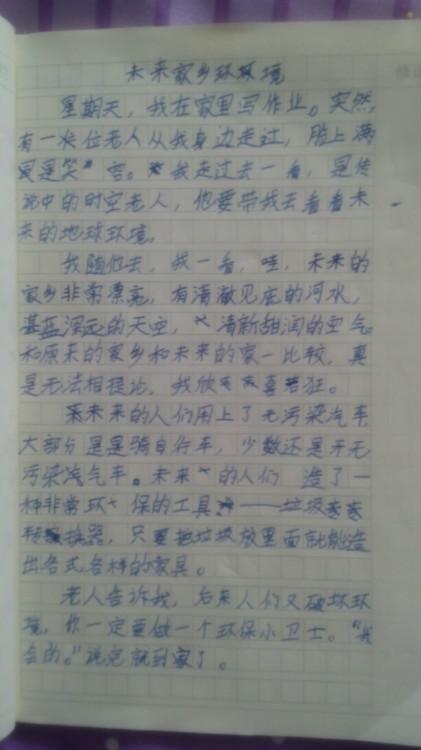 未来家乡环境
星期天，我在家里写作业。突然，
有一位老人从我身边走过，脸上满
是笑容。我走过去一看，是传
说中的时空老人，他要带我去看看未
来的地球环境。
我随他去，我一看，哇，未来的
家乡非常漂亮，有清澈见底的河水，
湛蓝深远的天空，清新甜润的空气。
和原来的家乡和未来的家一比较，真
是无法相提论，我欣喜若狂。
未来的人们用上了无污染汽车，
大部分是是骑自行车，少数还是开无
污染汽车。未来的人们 造了一
种非常环保的工具——垃圾
转换器，只要把垃圾放里面就能造
出各式各样的家具。
老人告诉我，后来人们又破坏环
境，你一定要做一个环保小卫士。“我
会的。”说完就到家了。